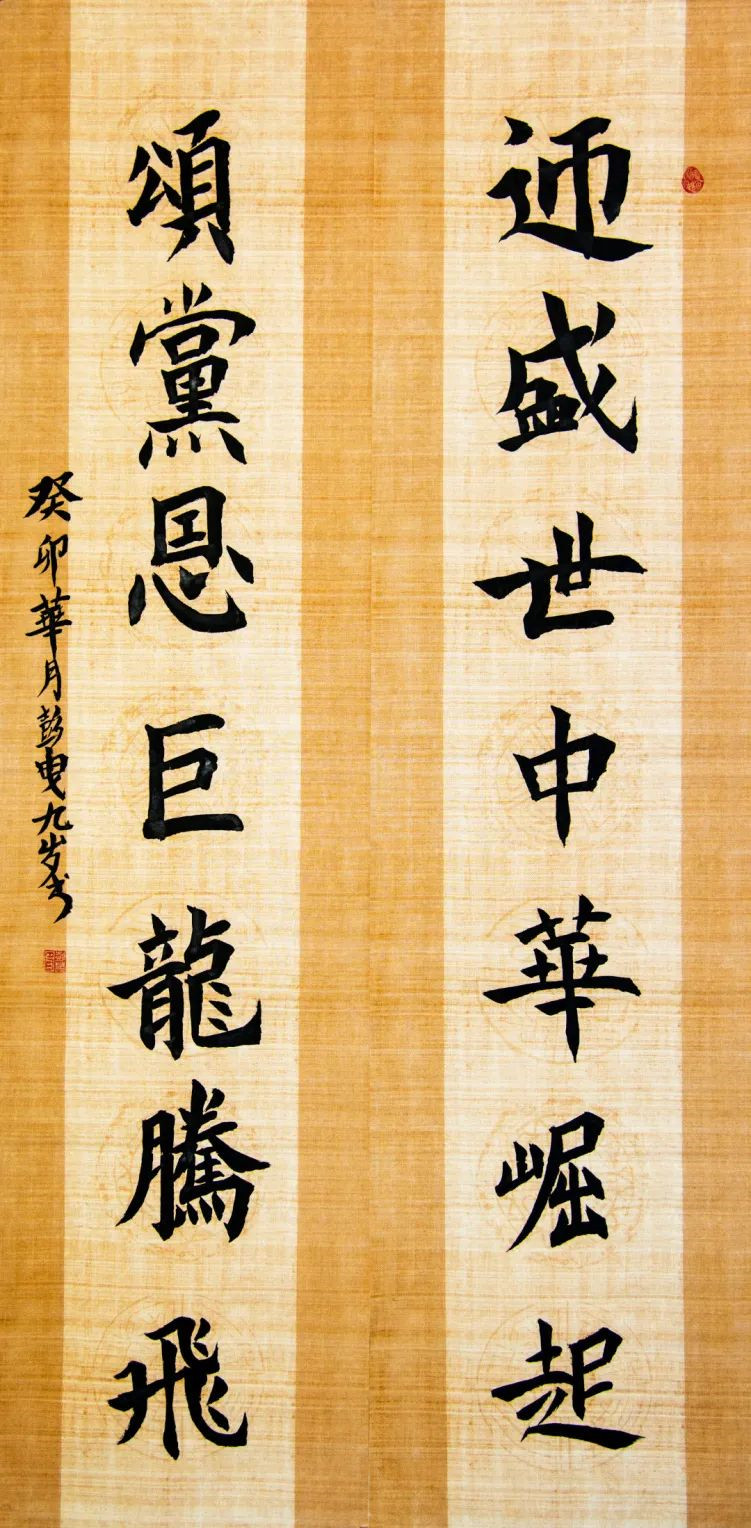 迊盛世中華崛起
頌黨恩巨龍騰飛
癸卯華月彭曳九岁书